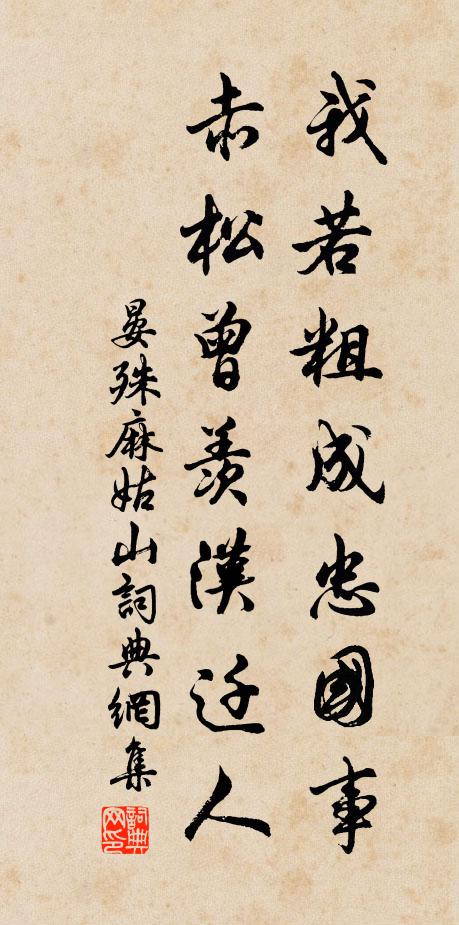 我若粗成忠國事
赤松曾羨漢廷人
晏殊麻姑山詞典網集
詞典
网印